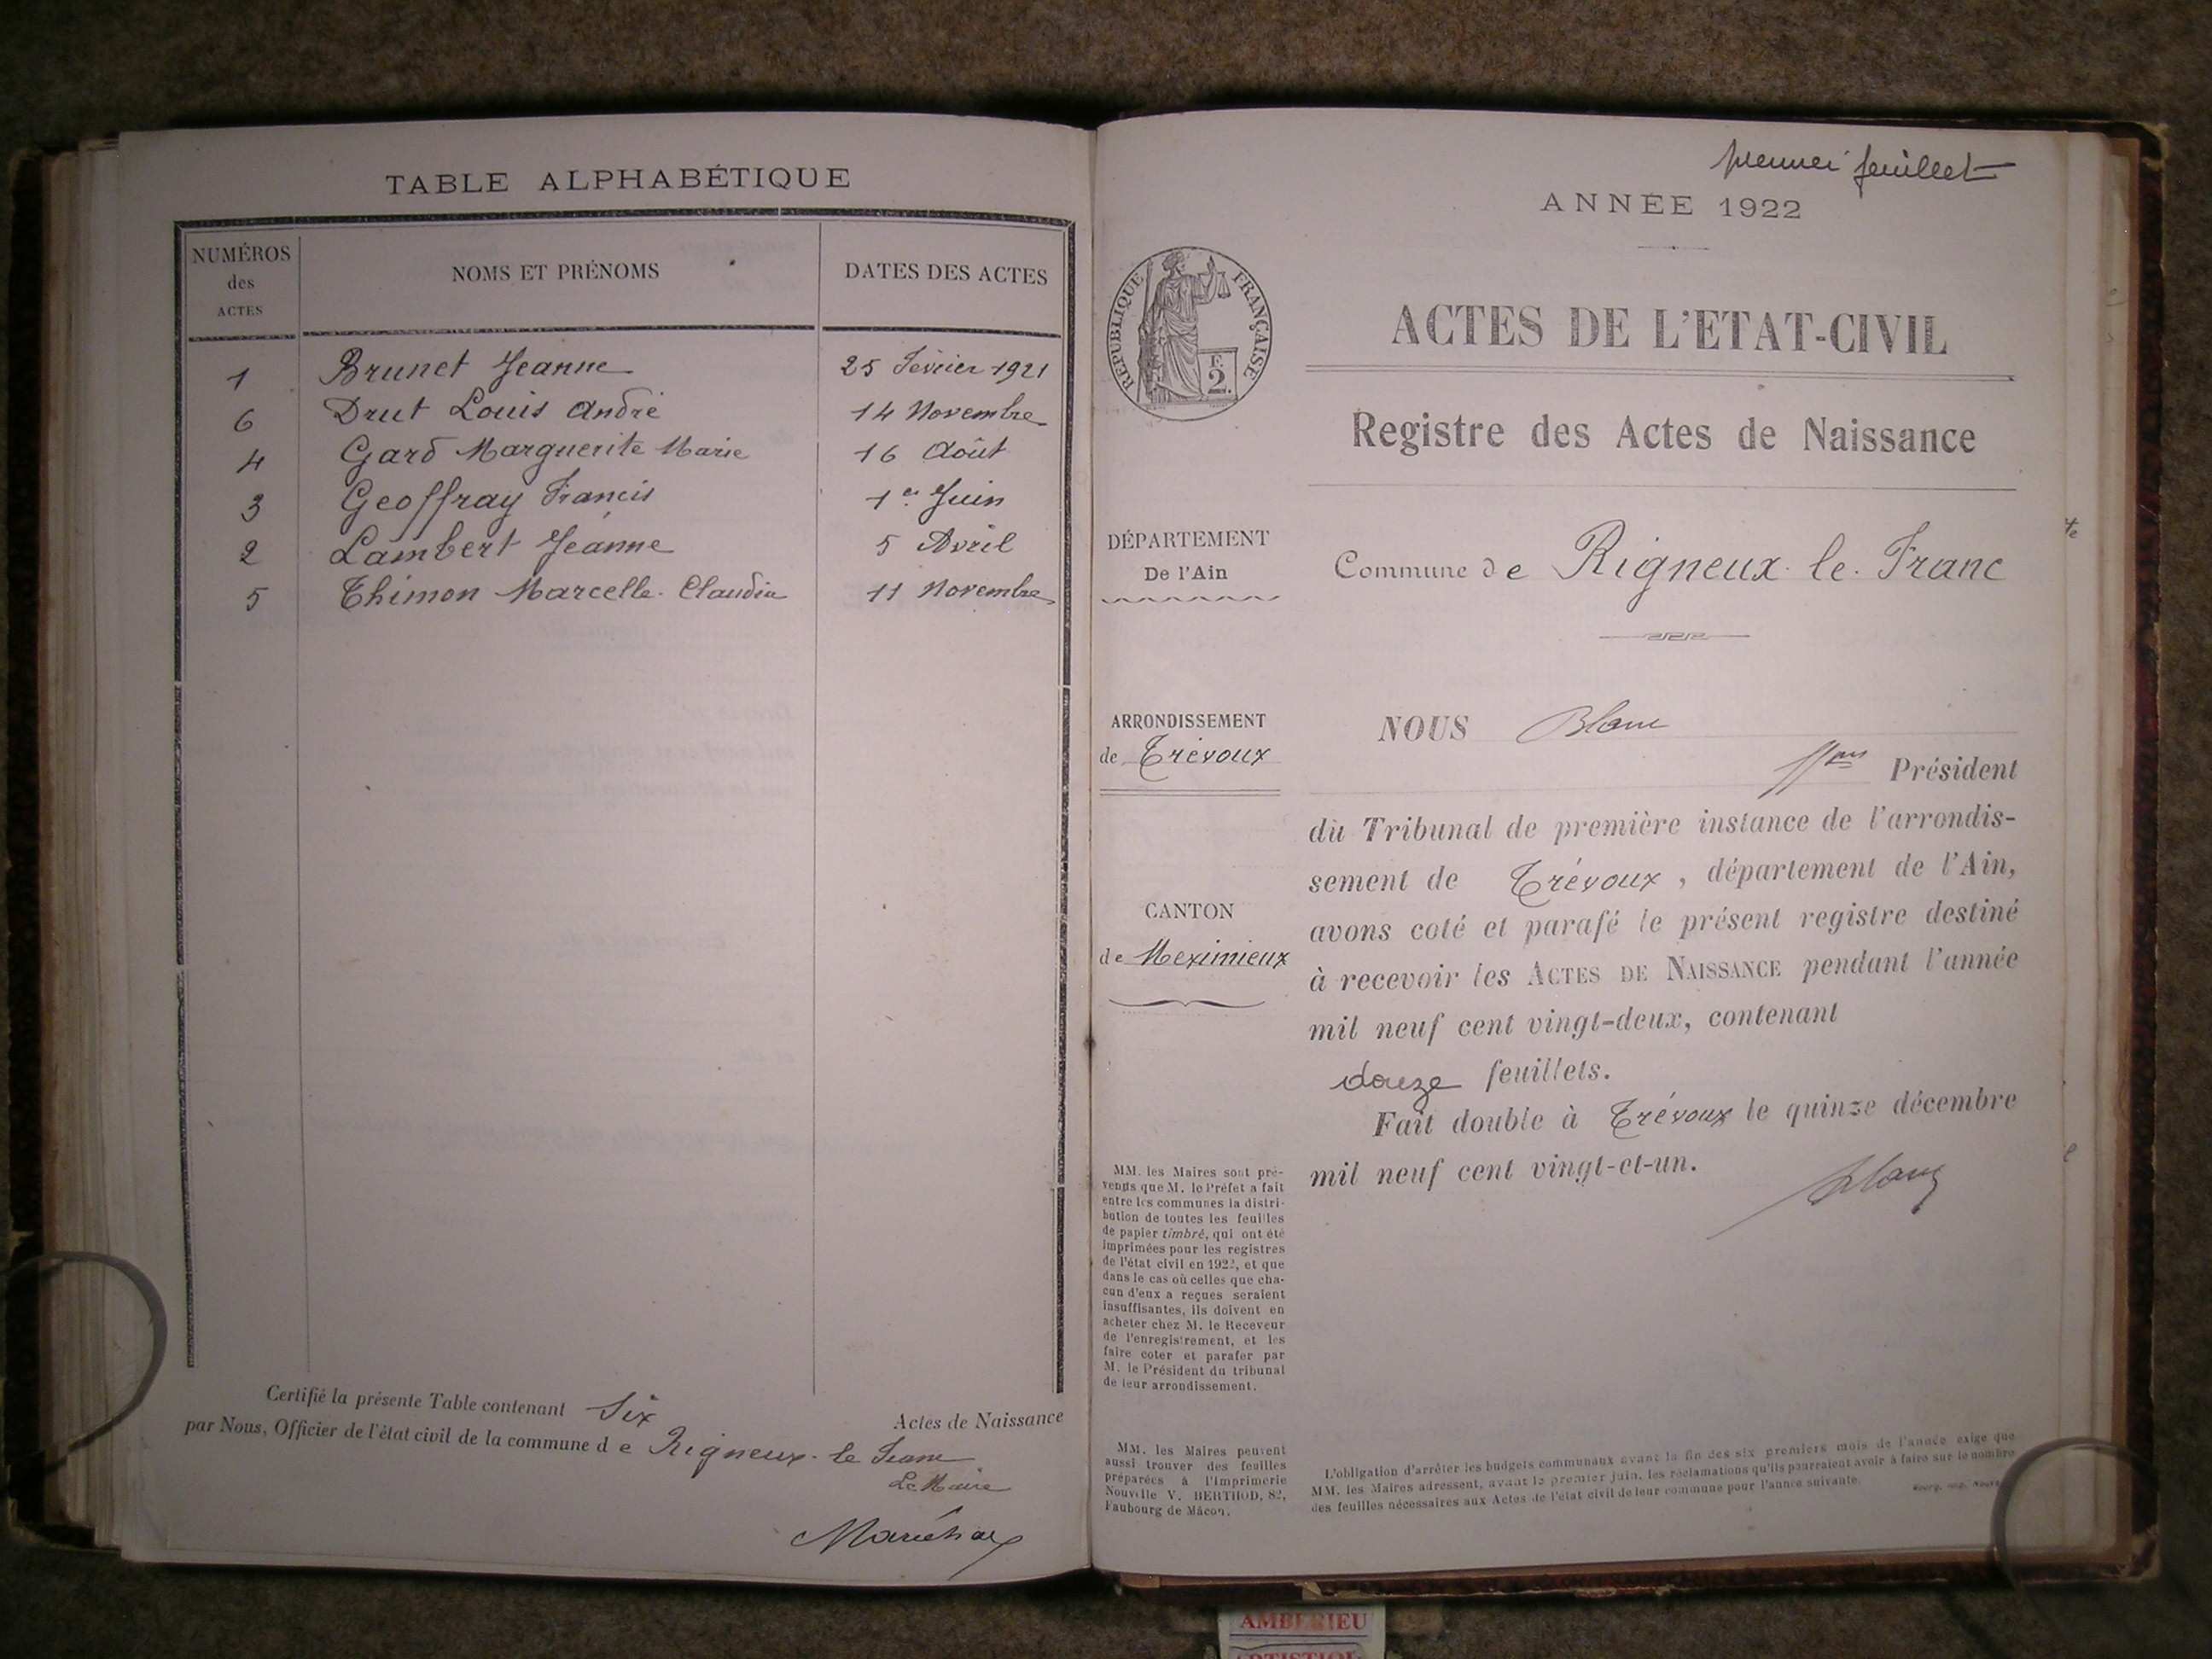 TABLE ALPHABÉTIQUE
NUMÉROS
des
ACTES
NOMS ET PRÉNOMS
DATES DES ACTES
1 Brunet Jeanne 25 Février 1921
6 Drut Louis André 14 Novembre
4 Gard Marguerite Marie 16 Août
3 Geoffray Francis 1er Juin
2 Lambert Jeanne 5 Avril
5 Thimon Marcelle-Claudia 11 Novembre
Certifié la présente Table contenant Six Actes de Naissance
par Nous, Officier de l'état civil de la commune de Rigneux-le Franc
Le Maire
premier feuillet
ANNÉE 1922
RÉPUBLIQUE FRANÇAISE
F.
2.
ACTES DE L'ETAT-CIVIL
Registre des Actes de Naissance
DÉPARTEMENT
De l'Ain
Commune de Rigneux-le-Franc
ARRONDISSEMENT
de Trévoux
CANTON
de Meximieux
NOUS Blanc
Président
du Tribunal de première instance de l'arrondis-
sement de Trévoux, département de l'Ain,
avons coté et parafé le présent registre destiné
à recevoir les ACTES DE NAISSANCE pendant l'année
mil neuf cent vingt-deux, contenant
douze feuillets.
Fait double à Trévoux le quinze décembre
mil neuf cent vingt-et-un.
Blanc
MM. les Maires sont pré-
venus que M. le Préfet a fait
entre les communes la distri-
bution de toutes les feuilles
de papier timbré, qui ont été
imprimées pour les registres
de l'état civil en 1922, et que
dans le cas où celles que cha-
cun d'eux a reçues seraient
insuffisantes, ils doivent en
acheter chez M. le Receveur
de l'enregistrement, et les
faire coter et parafer par
M. le Président du tribunal
de leur arrondissement.
MM. les Maires peuvent
aussi trouver des feuilles
préparées à l'Imprimerie
Nouvelle V. BERTHOD, 82,
Faubourg de Mâcon.
L'obligation d'arrêter les budgets communaux avant la fin des six premiers mois de l'année exige que
MM. les Maires adressent, avant le premier juin, les réclamations qu'ils pourraient avoir à faire sur le nombre
des feuilles nécessaires aux Actes de l'état civil de leur commune pour l'année suivante.
AMBERIEU